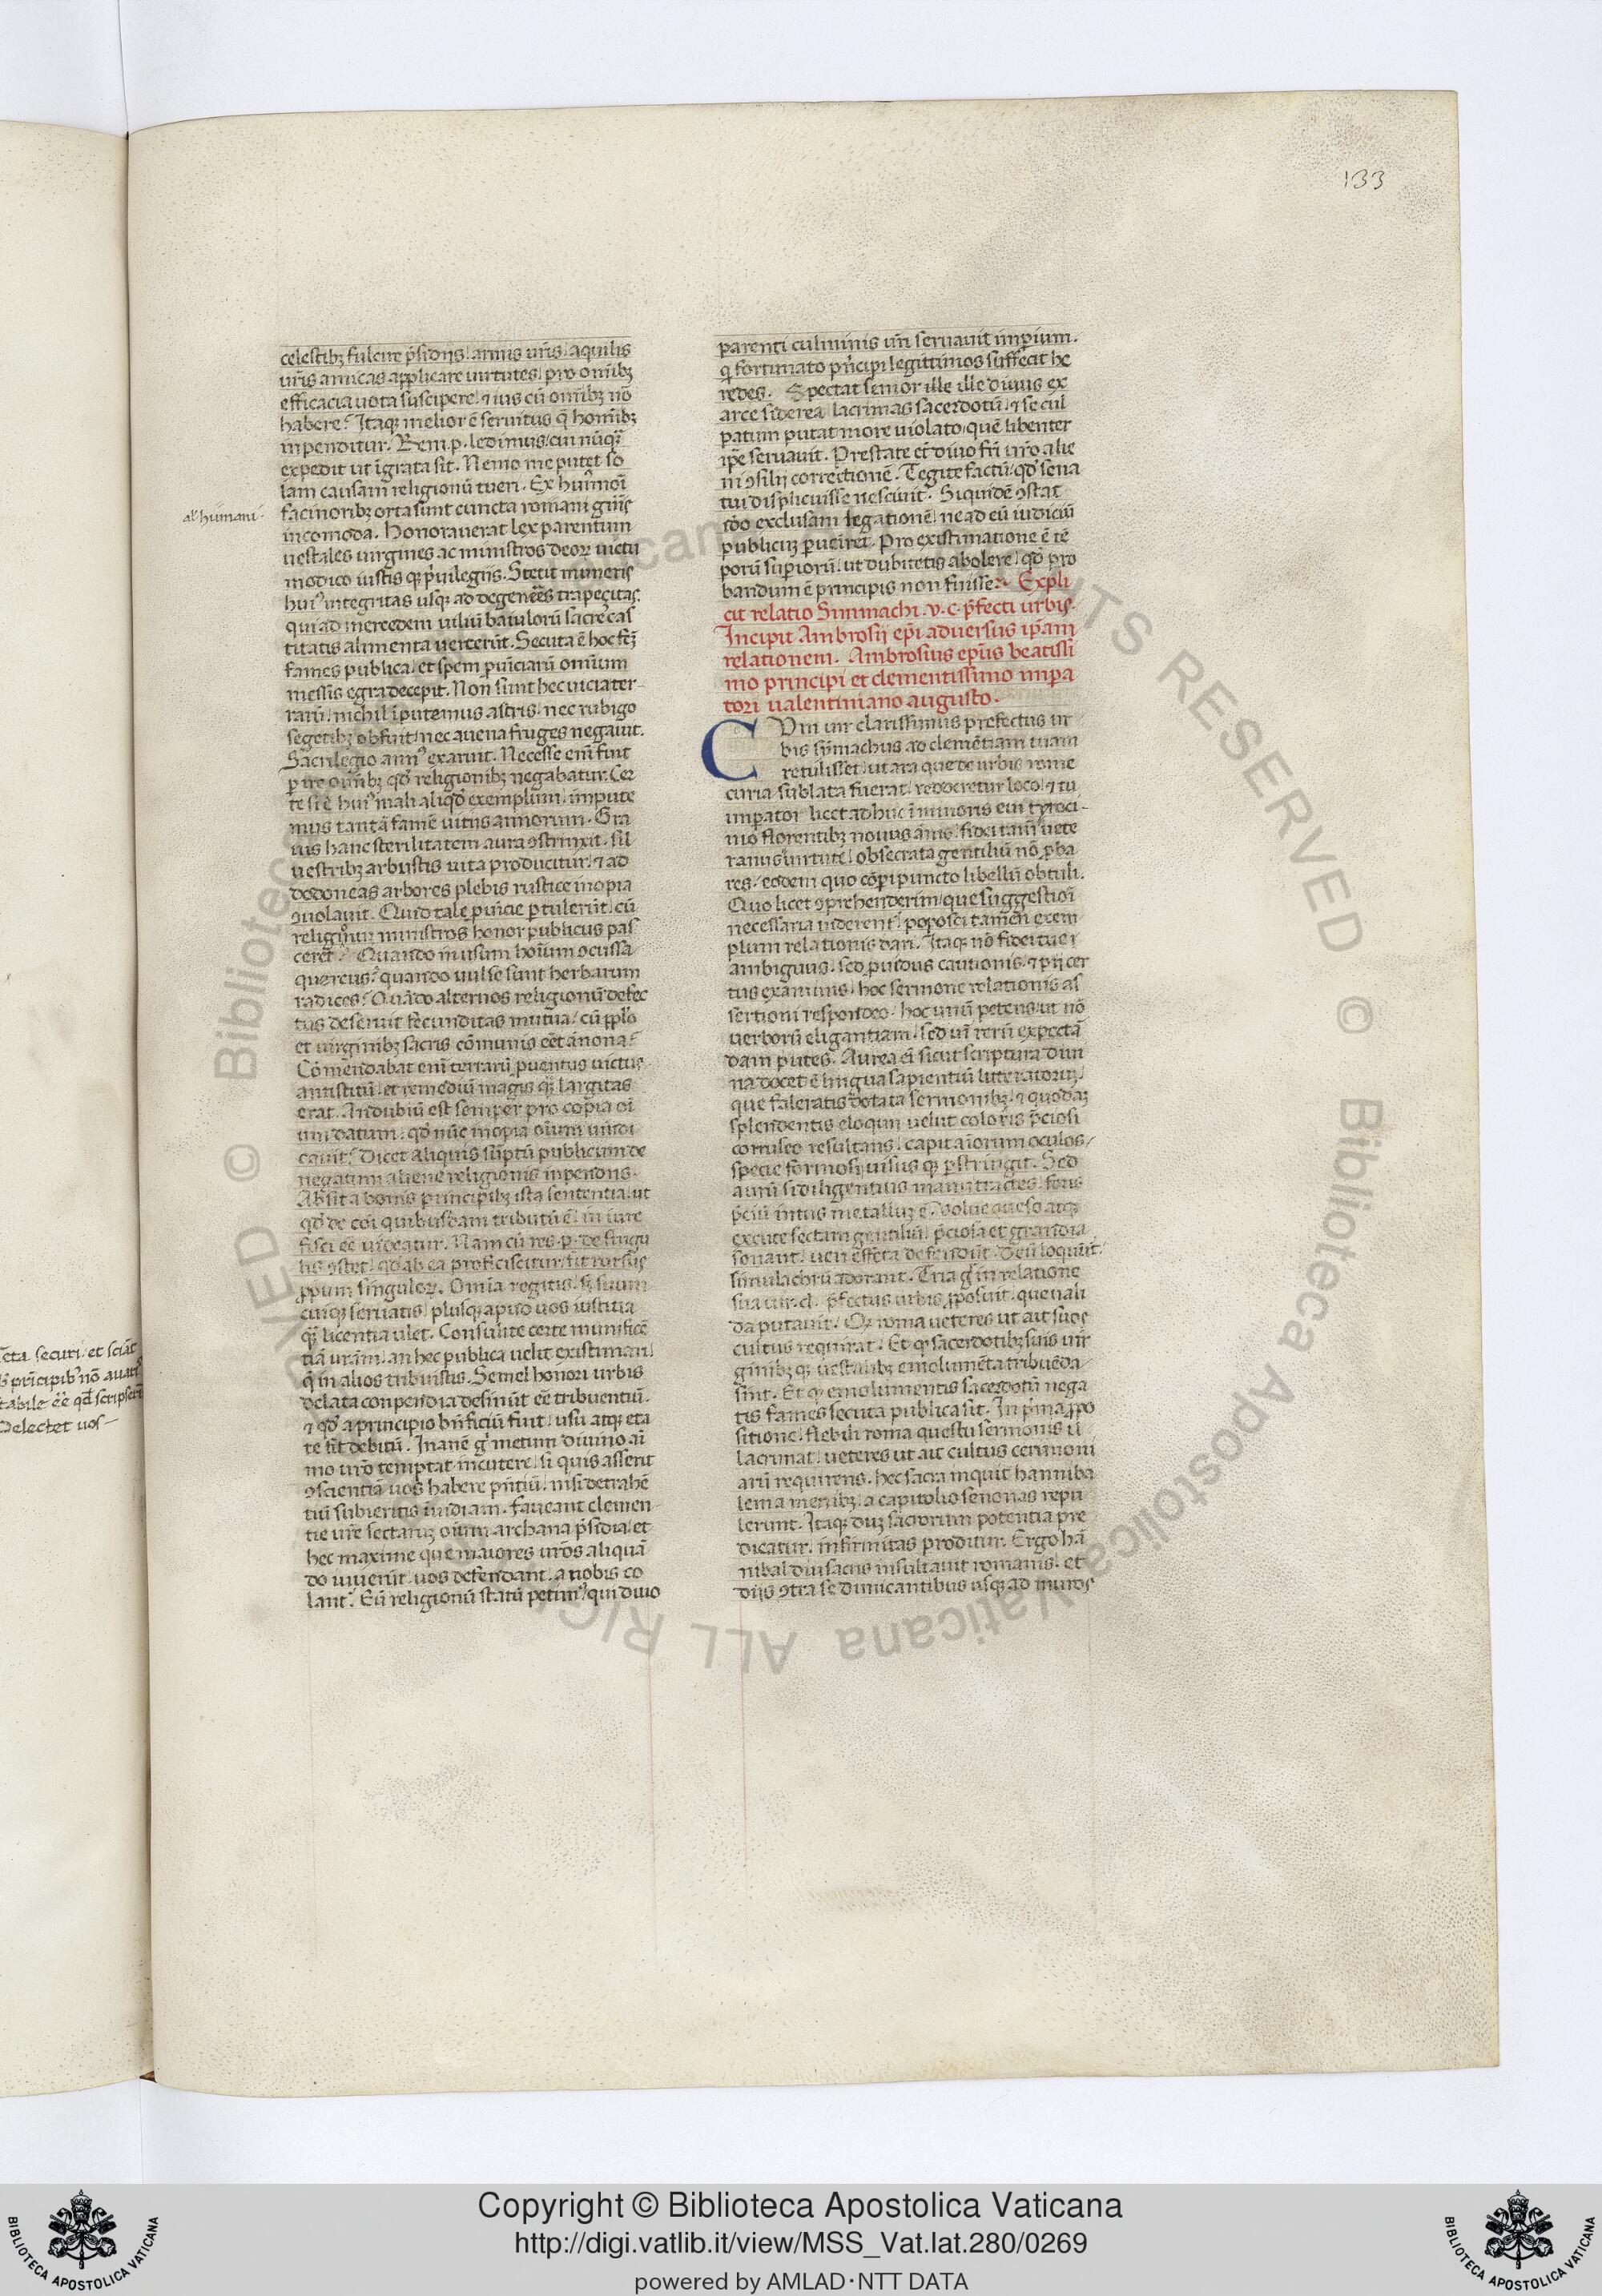 133
celestibz fulcire p̄sidijs / armis ur̄is / aquilis
ur̄is amicas applicare uirtutes / pro omībz
efficacia uota suscipere / ⁊ ius cū omībz nō
habere. Itaqz melior ē seruitus q̄ homībz
inpenditur. Rem.p. ledimus / cui nūqz̄
expedit ut īgrata sit. Nemo me putet so
lam causam religionū tueri. Ex hui᷒moī
al' humani.
facinoribz orta sunt cuncta romani gn̄is
incomoda. Honorauerat lex parentum
uestales uirgines ac ministros deoꝝ uictu
modico iustis qz p̄uilegijs. Stetit muneris
hui᷒ integritas usqz ad degeneres trapeçitas.
qui ad mercedem uiliū baiulorū sacre cas
titatis alimenta uerterūt. Secuta ē hoc fc̄z
fames publica / et spem puīciarū omīum
messis egra decepit. Non sunt hec uicia ter-
rarū. nichil īputemus astris. nec rubigo
segetibz obfuit / nec auena fruges negauit.
Sacrilegio ann᷒ exaruit. Necesse em̄ fuit
ꝑire omībz qđ religionibz negabatur. Cer
te si ē hui᷒ mali aliqđ exemplum / impute
mus tantā famē uitijs annorum. Gra
uis hanc sterilitatem aura ꝯstrinxit. sil
uestribz arbustis uita producitur / ⁊ ad
dodoneas arbores plebis rustice inopia
ꝯuolauit. Quid tale puīcie ꝑtulerūt / cū
religionum ministros honor publicus pas
ceret? Quando in usum hoīum ꝯcussa
quercus? quando uulse sunt herbarum
radices? Quādo alternos religionū defec
tus deseruit fecunditas mutua / cū ꝓplo
et uirginibz sacris cōmunis eēt ānona?
Cōmendabat enī terrarū ꝓuentus uictus
antistitū / et remediū magis qz̄ largitas
erat. An dubiū est semper pro copia oī
um datum / qđ nūc inopia oīum uindi
cauit? Dicet aliquis sūptū publicum de
negatum aliene religionis inpendijs.
Absit a bonis principibz ista sententia / ut
qđ de coī quibusdam tributū ē / in iure
fisci eē uideatur. Nam cū res .p. de singu
lis ꝯstet / qđ ab ea proficiscitur / fit rursus
ꝓprium singuloꝝ. Omīa regitis / sz suum
cuiqz seruatis / plusqz apud uos iustitia
qz̄ licentia ualet. Consulite certe munificē
tiā ur̄am / an hec publica uelit existimari /
q̄ in alios tribuistis. Semel honori urbis
delata conpendia desinūt eē tribuentiū.
⁊ qđ a principio bn̄ficiū fuit / usu atqz eta
te fit debitū. Inanē g̊ metum diuino aī
mo ur̄o temptat incutere / si quis asserit
ꝯscientiā uos habere p̄ntiū / nisi detrahē
tiū subieritis inuidiam. Faueant clemen-
tie ur̄e sectarz oīum archana p̄sidia / et
hec maxime que maiores ur̄os aliquā
do iuuerūt / uos defendant. a nobis co
lant᷒. Eū religionū statū petim᷒ / qui diuo
parenti culminis ur̄i seruauit imperium.
q̄ fortunato p̄ncipi legittimos suffecit he
redes. Spectat senior ille ille diuus ex
arce siderea / lacrimas sacerdotū / ⁊ se cul
patum putat more uiolato / quē libenter
ip̄e seruauit. Prestate et̄ diuo fr̄i ur̄o alie
ni ꝯsilij correctionē. Tegite factū / qđ sena
tui displicuisse nesciuit. Siquidē ꝯstat
iđo exclusam legationē / ne ad eū iudiciū
publicuz ꝑueīret. Pro existimatione ē tē
porū suꝑiorū / ut dubitetis abolere / qđ pro
bandum ē principis non fuisse. Expli
cit relatio Simmachi .v.c. p̄fecti urbis.
Incipit Ambrosij ep̄i aduersus ip̄am
relationem. Ambrosius ep̄us beatissi
mo principi et clementissimo impa
tori ualentiniano augusto.
CUm uir clarissimus prefectus ur
bis sȳmachus ad clemētiam tuam
retulisset / ut ara que de urbis rome
curia sublata fuerat / redderetur loco / ⁊ tu
imꝑator licet adhuc ī minoris eui tyroci-
nio florentibz nouus ānis / fidei tam̄ uete
ranus uirtute / obsecrata gentiliū nō ꝓba
res / eodem quo cōꝑi puncto libellū obtuli.
Quo licet ꝯprehenderim / que suggestioī
necessaria uiderent᷒ / poposci tamen exem
plum relationis dari. Itaqz nō fidei tue
ambiguus / sed ꝓuidus cautionis / ⁊ pij cer
tus examinis / hoc sermone relationis as
sertioni respondeo / hoc unū petens / ut nō
uerborū eligantiam / sed uī rerū expectā
dam putes. Aurea ei sicut scriptura diui
na docet ē lingua sapientiū litteratoruz /
que faleratis dotata sermonibz / ⁊ quodaz
splendentis eloquij uelut coloris p̄ciosi
corrusco resultans / capit aīorum oculos /
specie formosi / uisus qz ꝑstringit. Sed
aurū si diligentius manu tractes / foris
p̄ciū intus metalluz ē. Volue queso atqz
excute sectam gentiliū / p̄ciosa et grandia
sonant / ueri effeta defendūt. Deū loquūt᷒ /
simulachrū adorant. Tria g̊ in relatione
sua uir.cl. p̄fectus urbis ꝓposuit / que uali
da putauit. Qz roma ueteres ut ait suos
cultus requirat. Et qz sacerdotibz suis uir
ginibz qz uestalibz emolumēta tribuēda
sint. Et qz emolumentis sacerdotū nega
tis fames secuta publica sit. In p̄ma ꝓpo
sitione / flebili roma questu sermonis il
lacrimat / ueteres ut ait cultus cerimoni
arū requirens. hec sacra inquit hanniba
lem a menibz / a capitolio senonas repu
lerunt. Itaqz duz sacrorum potentia pre
dicatur / infirmitas proditur. Ergo hā
nibal diu sacris insultauit romanis / et
dijs ꝯtra se dimicantibus usqz ad muros
securi / et sciāt
principib᷒ nō
eē qđ
delectet uos
Copyright © Biblioteca Apostolica Vaticana
http://digi.vatlib.it/view/MSS_Vat.lat.280/0269
powered by AMLAD·NTT DATA
BIBLIOTECA APOSTOLICA VATICANA
BIBLIOTECA APOSTOLICA VATICANA